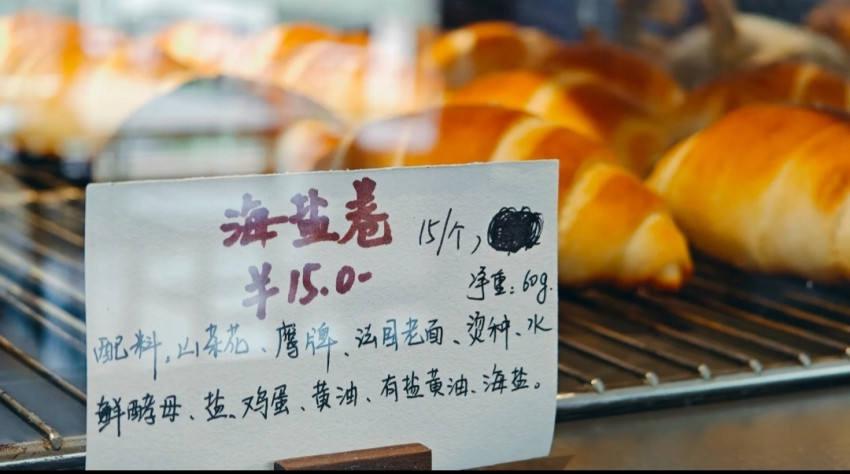 海盐卷 15/个,
¥15.0-
净重:60g.
配料,山茶花、鹰牌、法国老面、烫种、水
鲜酵母、盐、鸡蛋、黄油、有盐黄油、海盐。